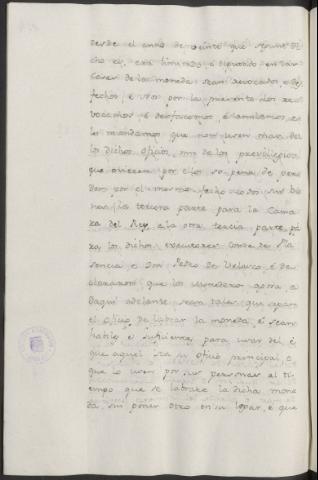 desde el anno de veinte que segunt di
cho es, era limitado é diputado en las
casas de la moneda sean revocados é des
fechos, é Nos por la presente los re
vocamos é desfacemos, é cambiamos, é
le mandamos que non usen mas de
los dichos oficios, nin de los previllegios
que ovieren por ellos so pena de per
der por el mesmo fecho todos sus bie
nes, la tercera parte para la Cama
ra del Rey, é la otra tercia parte pa
ra los dichos executores Conde de Pla
sencia é Don Pedro de Velasco, é de
claramos que los Monederos agora é
daqui adelante sean tales que sepan
el oficio de labrar la moneda, é sean
habiles é suficientes para usar del, é
que aquel sea su oficio principal, é
que lo usen por sus personas al ti
empo que se labrare la dicha mone
da sin poner otro en su logar, é que